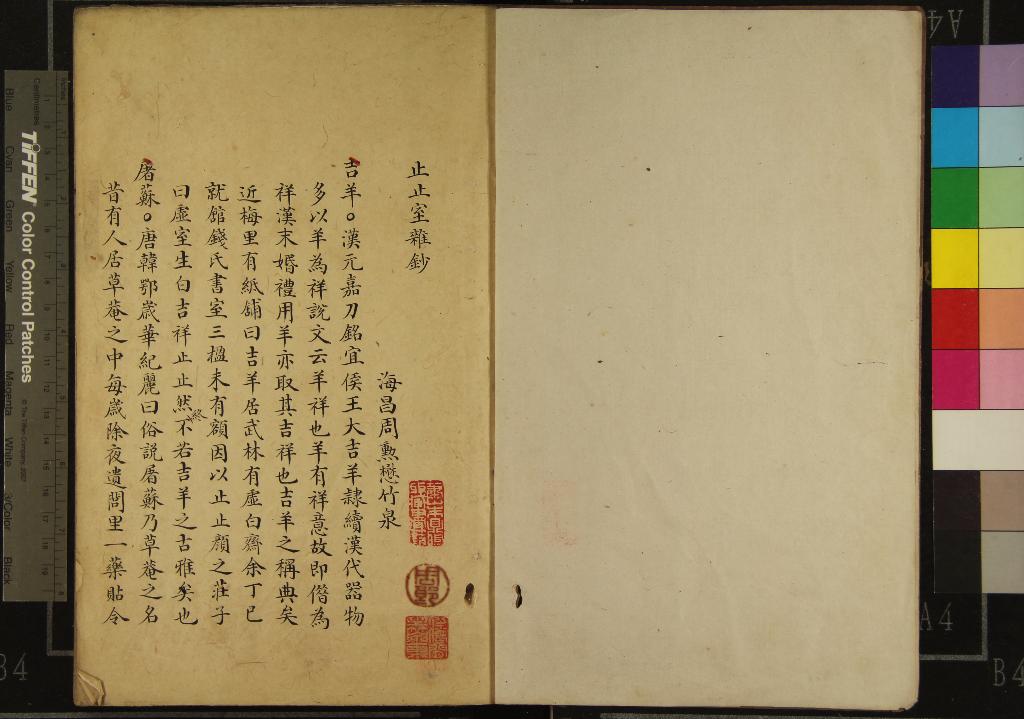 止止室雜鈔
海昌周勲懋竹泉
吉羊。漢元嘉刀銘宜侯王大吉羊隷續漢代器物
多以羊為祥說文云羊祥也羊有祥意故即借為
祥漢末婚禮用羊亦取其吉祥也吉羊之稱典矣
近梅里有紙舖曰吉羊居武林有虛白齋余丁巳
就館錢氏書室三楹未有額因以止止顔之莊子
曰虛室生白吉祥止止然終不若吉羊之古雅矣也
屠蘇。唐韓鄂歲華紀麗曰俗說屠蘇乃草菴之名
昔有人居草菴之中每歲除夜遺閭里一藥貼令
TIFFEN Color Control Patches
© The Tiffen Company, 2007
Centimetres
Inches
Blue
Cyan
Green
Yellow
Red
Magenta
White
3/Color
Black
A4
A4
B4
B4